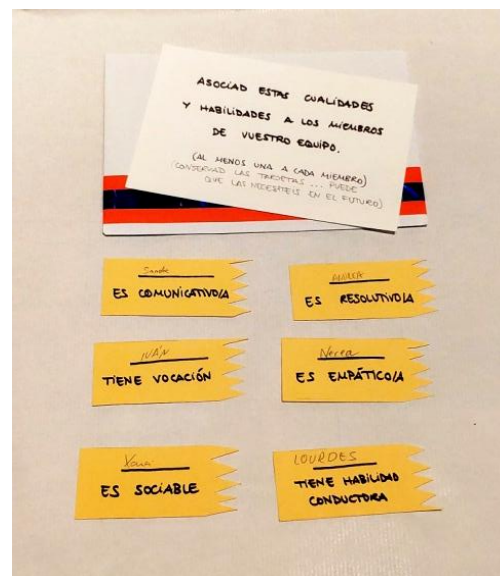 ASOCIAD ESTAS CUALIDADES
Y HABILIDADES A LOS MIEMBROS
DE VUESTRO EQUIPO.
(AL MENOS UNA A CADA MIEMBRO)
(CONSERVAD LAS TARJETAS ... PUEDE
QUE LAS NECESITEIS EN EL FUTURO)
ES COMUNICATIVO/A
ES RESOLUTIVO/A
IVÁN
TIENE VOCACIÓN
Nerea
ES EMPÁTICO/A
ES SOCIABLE
LOURDES
TIENE HABILIDAD
CONDUCTORA